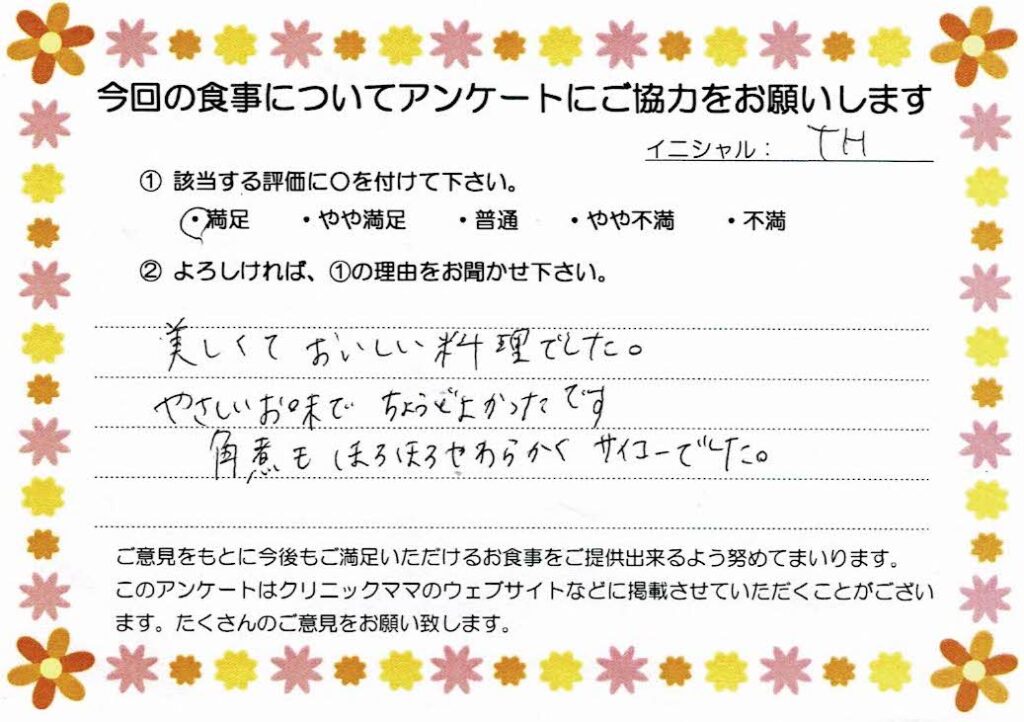 今回の食事についてアンケートにご協力をお願いします
イニシャル： TH
① 該当する評価に〇を付けて下さい。
・満足 ・やや満足 ・普通 ・やや不満 ・不満
② よろしければ、①の理由をお聞かせ下さい。
美しくて おいしい 料理でした。
やさしいお味で ちょうどよかったです
角煮も ほろほろやわらかく サイコーでした。
ご意見をもとに今後もご満足いただけるお食事をご提供出来るよう努めてまいります。
このアンケートはクリニックママのウェブサイトなどに掲載させていただくことがござい
ます。たくさんのご意見をお願い致します。